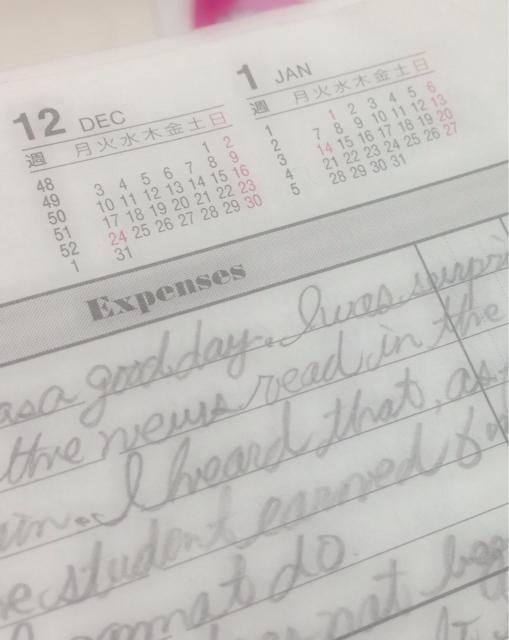 12 DEC
週 月火水木金土日
48 1 2
49 3 4 5 6 7 8 9
50 10 11 12 13 14 15 16
51 17 18 19 20 21 22 23
52 24 25 26 27 28 29 30
1 31
1 JAN
週 月火水木金土日
1 1 2 3 4 5 6
2 7 8 9 10 11 12 13
3 14 15 16 17 18 19 20
4 21 22 23 24 25 26 27
5 28 29 30 31
Expenses
as a good day. I was
the news read in the
I heard that, as
student earned
do.
not